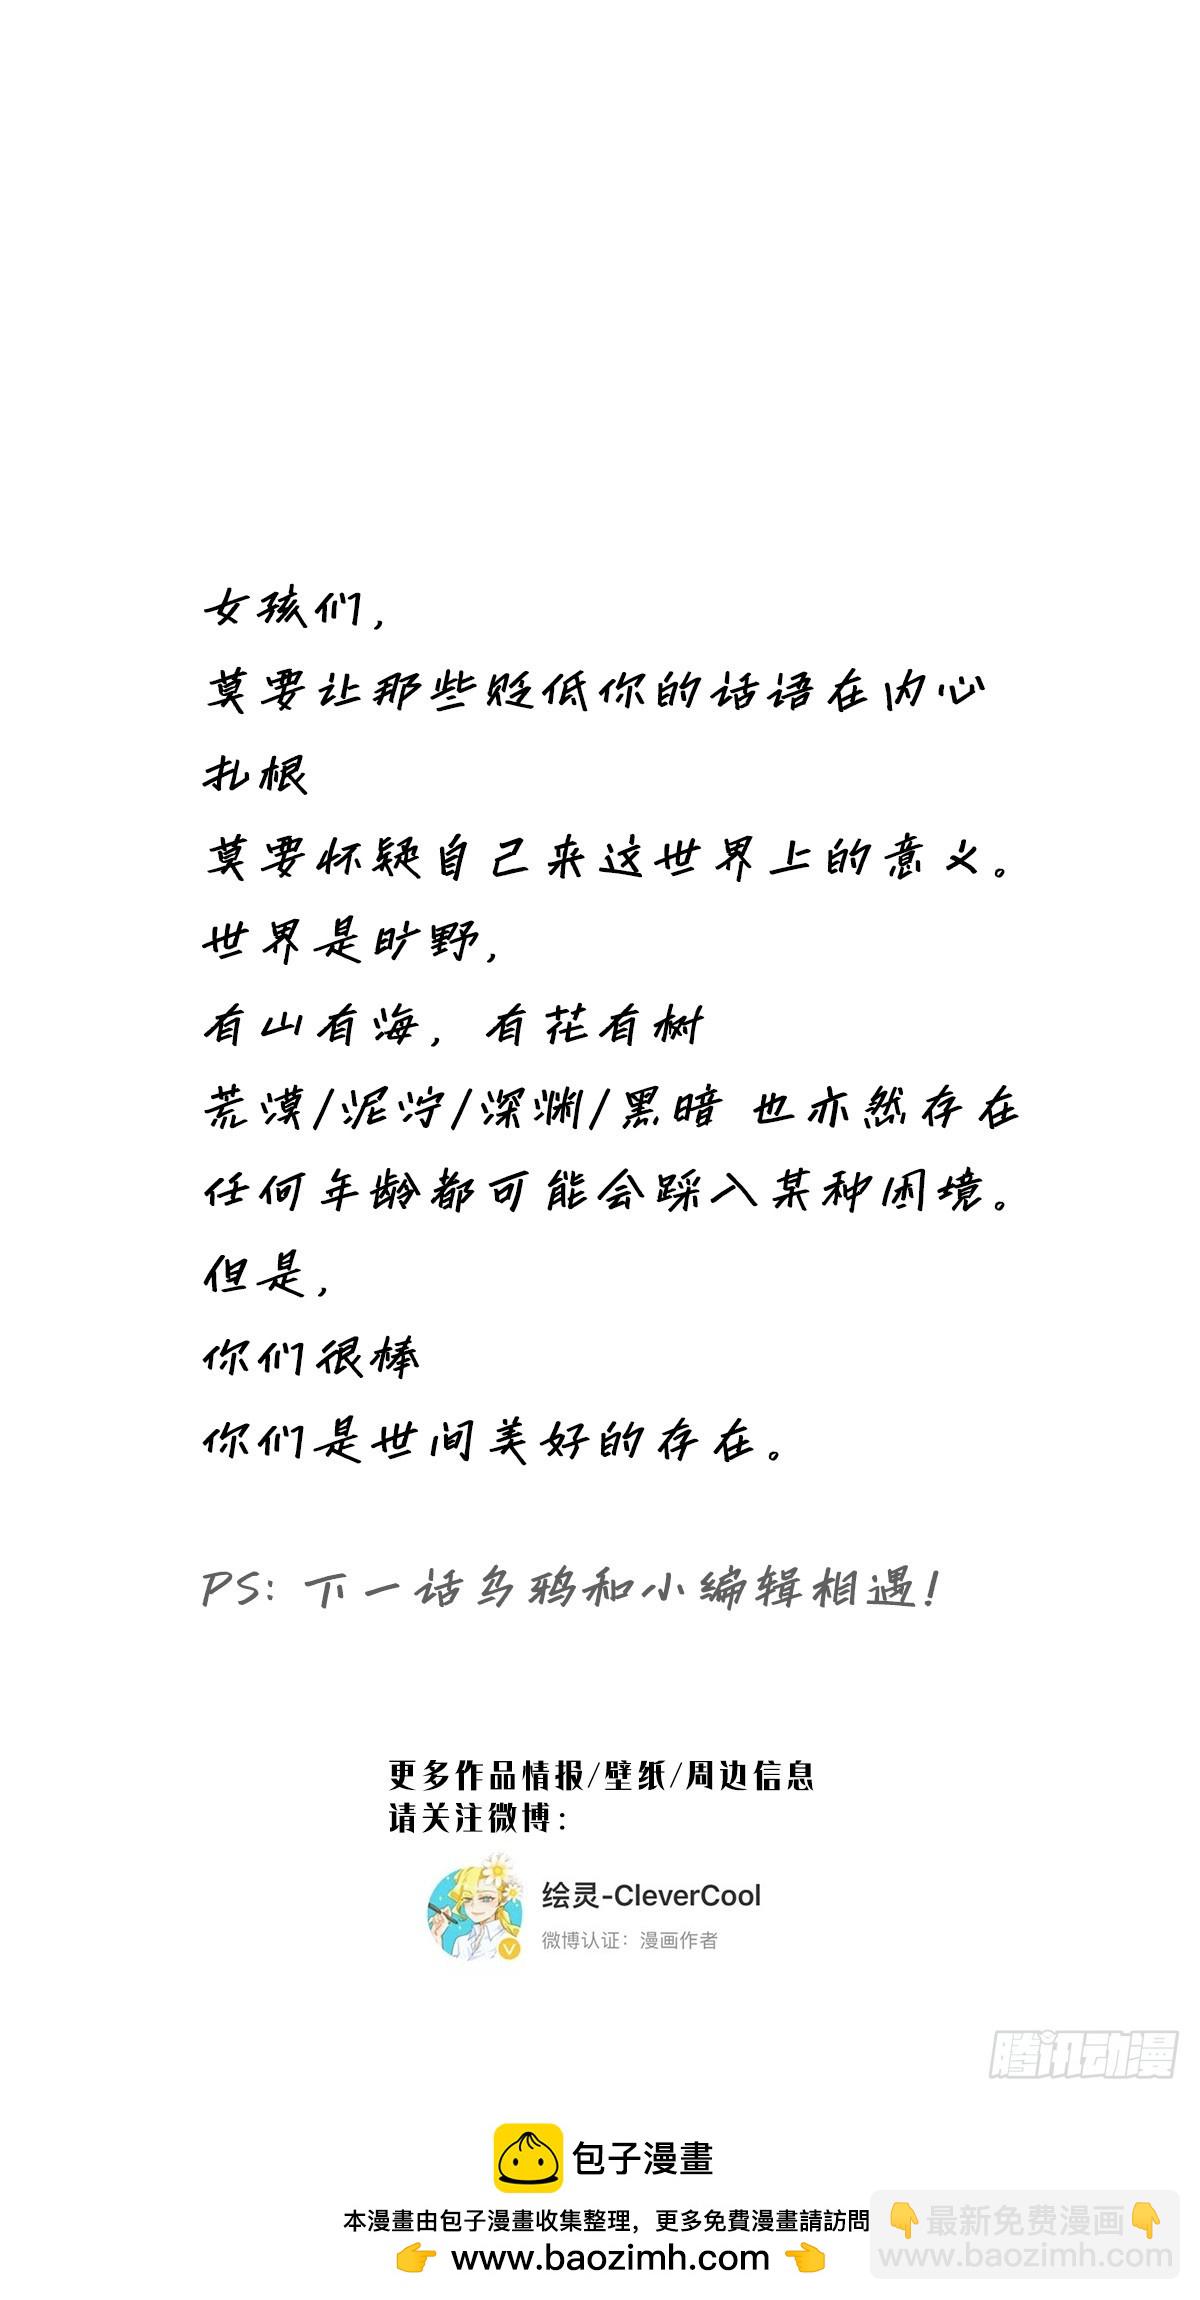 女孩们,
莫要让那些贬低你的话语在内心
扎根
莫要怀疑自己来这世界上的意义。
世界是旷野,
有山有海, 有花有树
荒漠/泥泞/深渊/黑暗 也亦然存在
任何年龄都可能会踩入某种困境。
但是,
你们很棒
你们是世间美好的存在。
PS: 下一话乌鸦和小编辑相遇!
更多作品情报/壁纸/周边信息
请关注微博:
绘灵-CleverCool
微博认证：漫画作者
腾讯动漫
包子漫畫
本漫畫由包子漫畫收集整理，更多免費漫畫請訪問
www.baozimh.com
最新免费漫画
www.baozimh.com